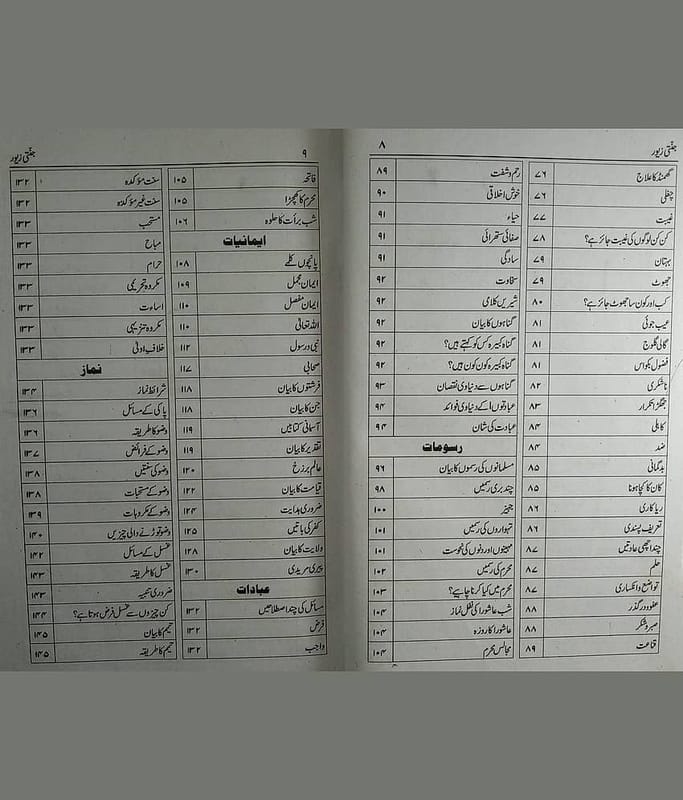 جنتی زیور
۸
گھمنڈ کا علاج ۷۶
چغلی ۷۶
غیبت ۷۷
کن کن لوگوں کی غیبت جائز ہے؟ ۷۸
بہتان ۷۹
جھوٹ ۷۹
کب اور کون سا جھوٹ جائز ہے؟ ۸۰
عیب جوئی ۸۱
گالی گلوج ۸۱
فضول بکواس ۸۱
ناشکری ۸۲
جھگڑا تکرار ۸۳
کاہلی ۸۴
ضد ۸۴
بدگمانی ۸۵
کان کا کچا ہونا ۸۵
ریا کاری ۸۶
تعریف پسندی ۸۶
چند اچھی عادتیں ۸۷
حلم ۸۷
تواضع و انکساری ۸۷
عفو و درگذر ۸۸
صبر و شکر ۸۸
قناعت ۸۹
رحم و شفقت ۸۹
خوش اخلاقی ۹۰
حیاء ۹۱
صفائی ستھرائی ۹۱
سادگی ۹۱
سخاوت ۹۲
شیریں کلامی ۹۲
گناہوں کا بیان ۹۲
گناہ کبیرہ کس کو کہتے ہیں؟ ۹۲
گناہ کبیرہ کون کون ہیں؟ ۹۲
گناہوں سے دنیاوی نقصان ۹۳
عبادتوں کے دنیاوی فوائد ۹۴
عبادت کی شان ۹۴
رسومات
مسلمانوں کی رسموں کا بیان ۹۶
چند بری رسمیں ۹۸
جہیز ۱۰۰
تہواروں کی رسمیں ۱۰۱
مہینوں اور دنوں کی نحوست ۱۰۱
محرم کی رسمیں ۱۰۲
محرم میں کیا کرنا چاہیے؟ ۱۰۳
شب عاشورا کی نفل نماز ۱۰۴
عاشورا کا روزہ ۱۰۴
مجالس محرم ۱۰۴
۹
جنتی زیور
فاتحہ ۱۰۵
محرم کا کھچڑا ۱۰۵
شب برأت کا حلوہ ۱۰۶
ایمانیات
پانچوں کلمے ۱۰۸
ایمان مجمل ۱۰۹
ایمان مفصل ۱۱۰
اللہ تعالیٰ ۱۱۰
نبی و رسول ۱۱۲
صحابی ۱۱۷
فرشتوں کا بیان ۱۱۸
جن کا بیان ۱۱۸
آسمانی کتابیں ۱۱۹
تقدیر کا بیان ۱۱۹
عالم برزخ ۱۲۰
قیامت کا بیان ۱۲۲
ضروری ہدایت ۱۲۴
کفر کی باتیں ۱۲۵
ولایت کا بیان ۱۲۸
پیری مریدی ۱۳۰
عبادات
مسائل کی چند اصطلاحیں ۱۳۲
فرض ۱۳۲
واجب ۱۳۲
سنت مؤکدہ ۱۳۲
سنت غیر مؤکدہ ۱۳۲
مستحب ۱۳۳
مباح ۱۳۳
حرام ۱۳۳
مکروہ تحریمی ۱۳۳
اساءت ۱۳۳
مکروہ تنزیہی ۱۳۳
خلاف اولیٰ ۱۳۳
نماز
شرائط نماز ۱۳۴
پاکی کے مسائل ۱۳۶
وضو کا طریقہ ۱۳۶
وضو کے فرائض ۱۳۷
وضو کی سنتیں ۱۳۸
وضو کے مستحبات ۱۳۸
وضو کے مکروہات ۱۳۹
وضو توڑنے والی چیزیں ۱۴۰
غسل کے مسائل ۱۴۲
غسل کا طریقہ ۱۴۳
ضروری تنبیہ ۱۴۳
کن چیزوں سے غسل فرض ہوتا ہے؟ ۱۴۴
تیمم کا بیان ۱۴۵
تیمم کا طریقہ ۱۴۵